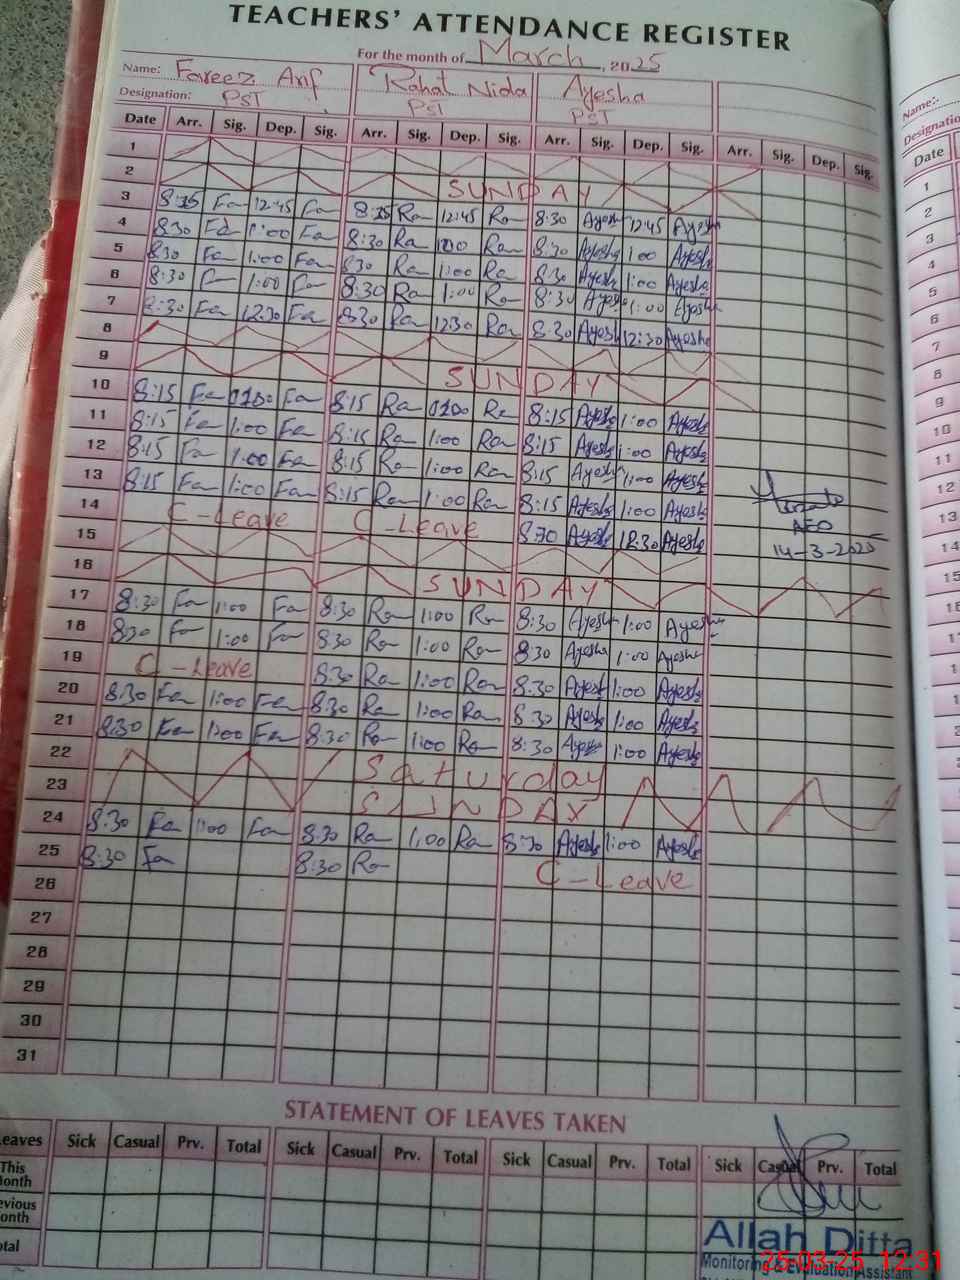 TEACHERS' ATTENDANCE REGISTER
For the month of March, 2025
Name: Fareez Arif Rahat Nida Ayesha
Designation: PST PST PST
Date Arr. Sig. Dep. Sig. Arr. Sig. Dep. Sig. Arr. Sig. Dep. Sig. Arr. Sig. Dep. Sig.
1
2 SUNDAY
3 8:25 Fa 12:45 Fa 8:25 Ra 12:45 Ra 8:30 Ayesha 12:45 Ayesha
4 8:30 Fa 1:00 Fa 8:30 Ra 1:00 Ra 8:30 Ayesha 1:00 Ayesha
5 8:30 Fa 1:00 Fa 8:30 Ra 1:00 Ra 8:30 Ayesha 1:00 Ayesha
6 8:30 Fa 1:00 Fa 8:30 Ra 1:00 Ra 8:30 Ayesha 1:00 Ayesha
7 8:30 Fa 12:30 Fa 8:30 Ra 12:30 Ra 8:30 Ayesha 12:30 Ayesha
8
9 SUNDAY
10 8:15 Fa 01:00 Fa 8:15 Ra 01:00 Ra 8:15 Ayesha 1:00 Ayesha
11 8:15 Fa 1:00 Fa 8:15 Ra 1:00 Ra 8:15 Ayesha 1:00 Ayesha
12 8:15 Fa 1:00 Fa 8:15 Ra 1:00 Ra 8:15 Ayesha 1:00 Ayesha
13 8:15 Fa 1:00 Fa 8:15 Ra 1:00 Ra 8:15 Ayesha 1:00 Ayesha
14 C-Leave C-Leave 8:30 Ayesha 12:30 Ayesha
AEO
14-3-2025
15
16 SUNDAY
17 8:30 Fa 1:00 Fa 8:30 Ra 1:00 Ra 8:30 Ayesha 1:00 Ayesha
18 8:30 Fa 1:00 Fa 8:30 Ra 1:00 Ra 8:30 Ayesha 1:00 Ayesha
19 C-Leave 8:30 Ra 1:00 Ra 8:30 Ayesha 1:00 Ayesha
20 8:30 Fa 1:00 Fa 8:30 Ra 1:00 Ra 8:30 Ayesha 1:00 Ayesha
21 8:30 Fa 1:00 Fa 8:30 Ra 1:00 Ra 8:30 Ayesha 1:00 Ayesha
22 Saturday
23 SUNDAY
24 8:30 Fa 1:00 Fa 8:30 Ra 1:00 Ra 8:30 Ayesha 1:00 Ayesha
25 8:30 Fa 8:30 Ra C-Leave
26
27
28
29
30
31
STATEMENT OF LEAVES TAKEN
eaves Sick Casual Prv. Total Sick Casual Prv. Total Sick Casual Prv. Total Sick Casual Prv. Total
This
onth
evious
onth
otal
Allah Ditta
Monitoring & Evaluation Assistan
25-03-25 12:31
Name:-
Designatio
Date
1
2
3
4
5
6
7
8
9
10
11
12
13
14
15